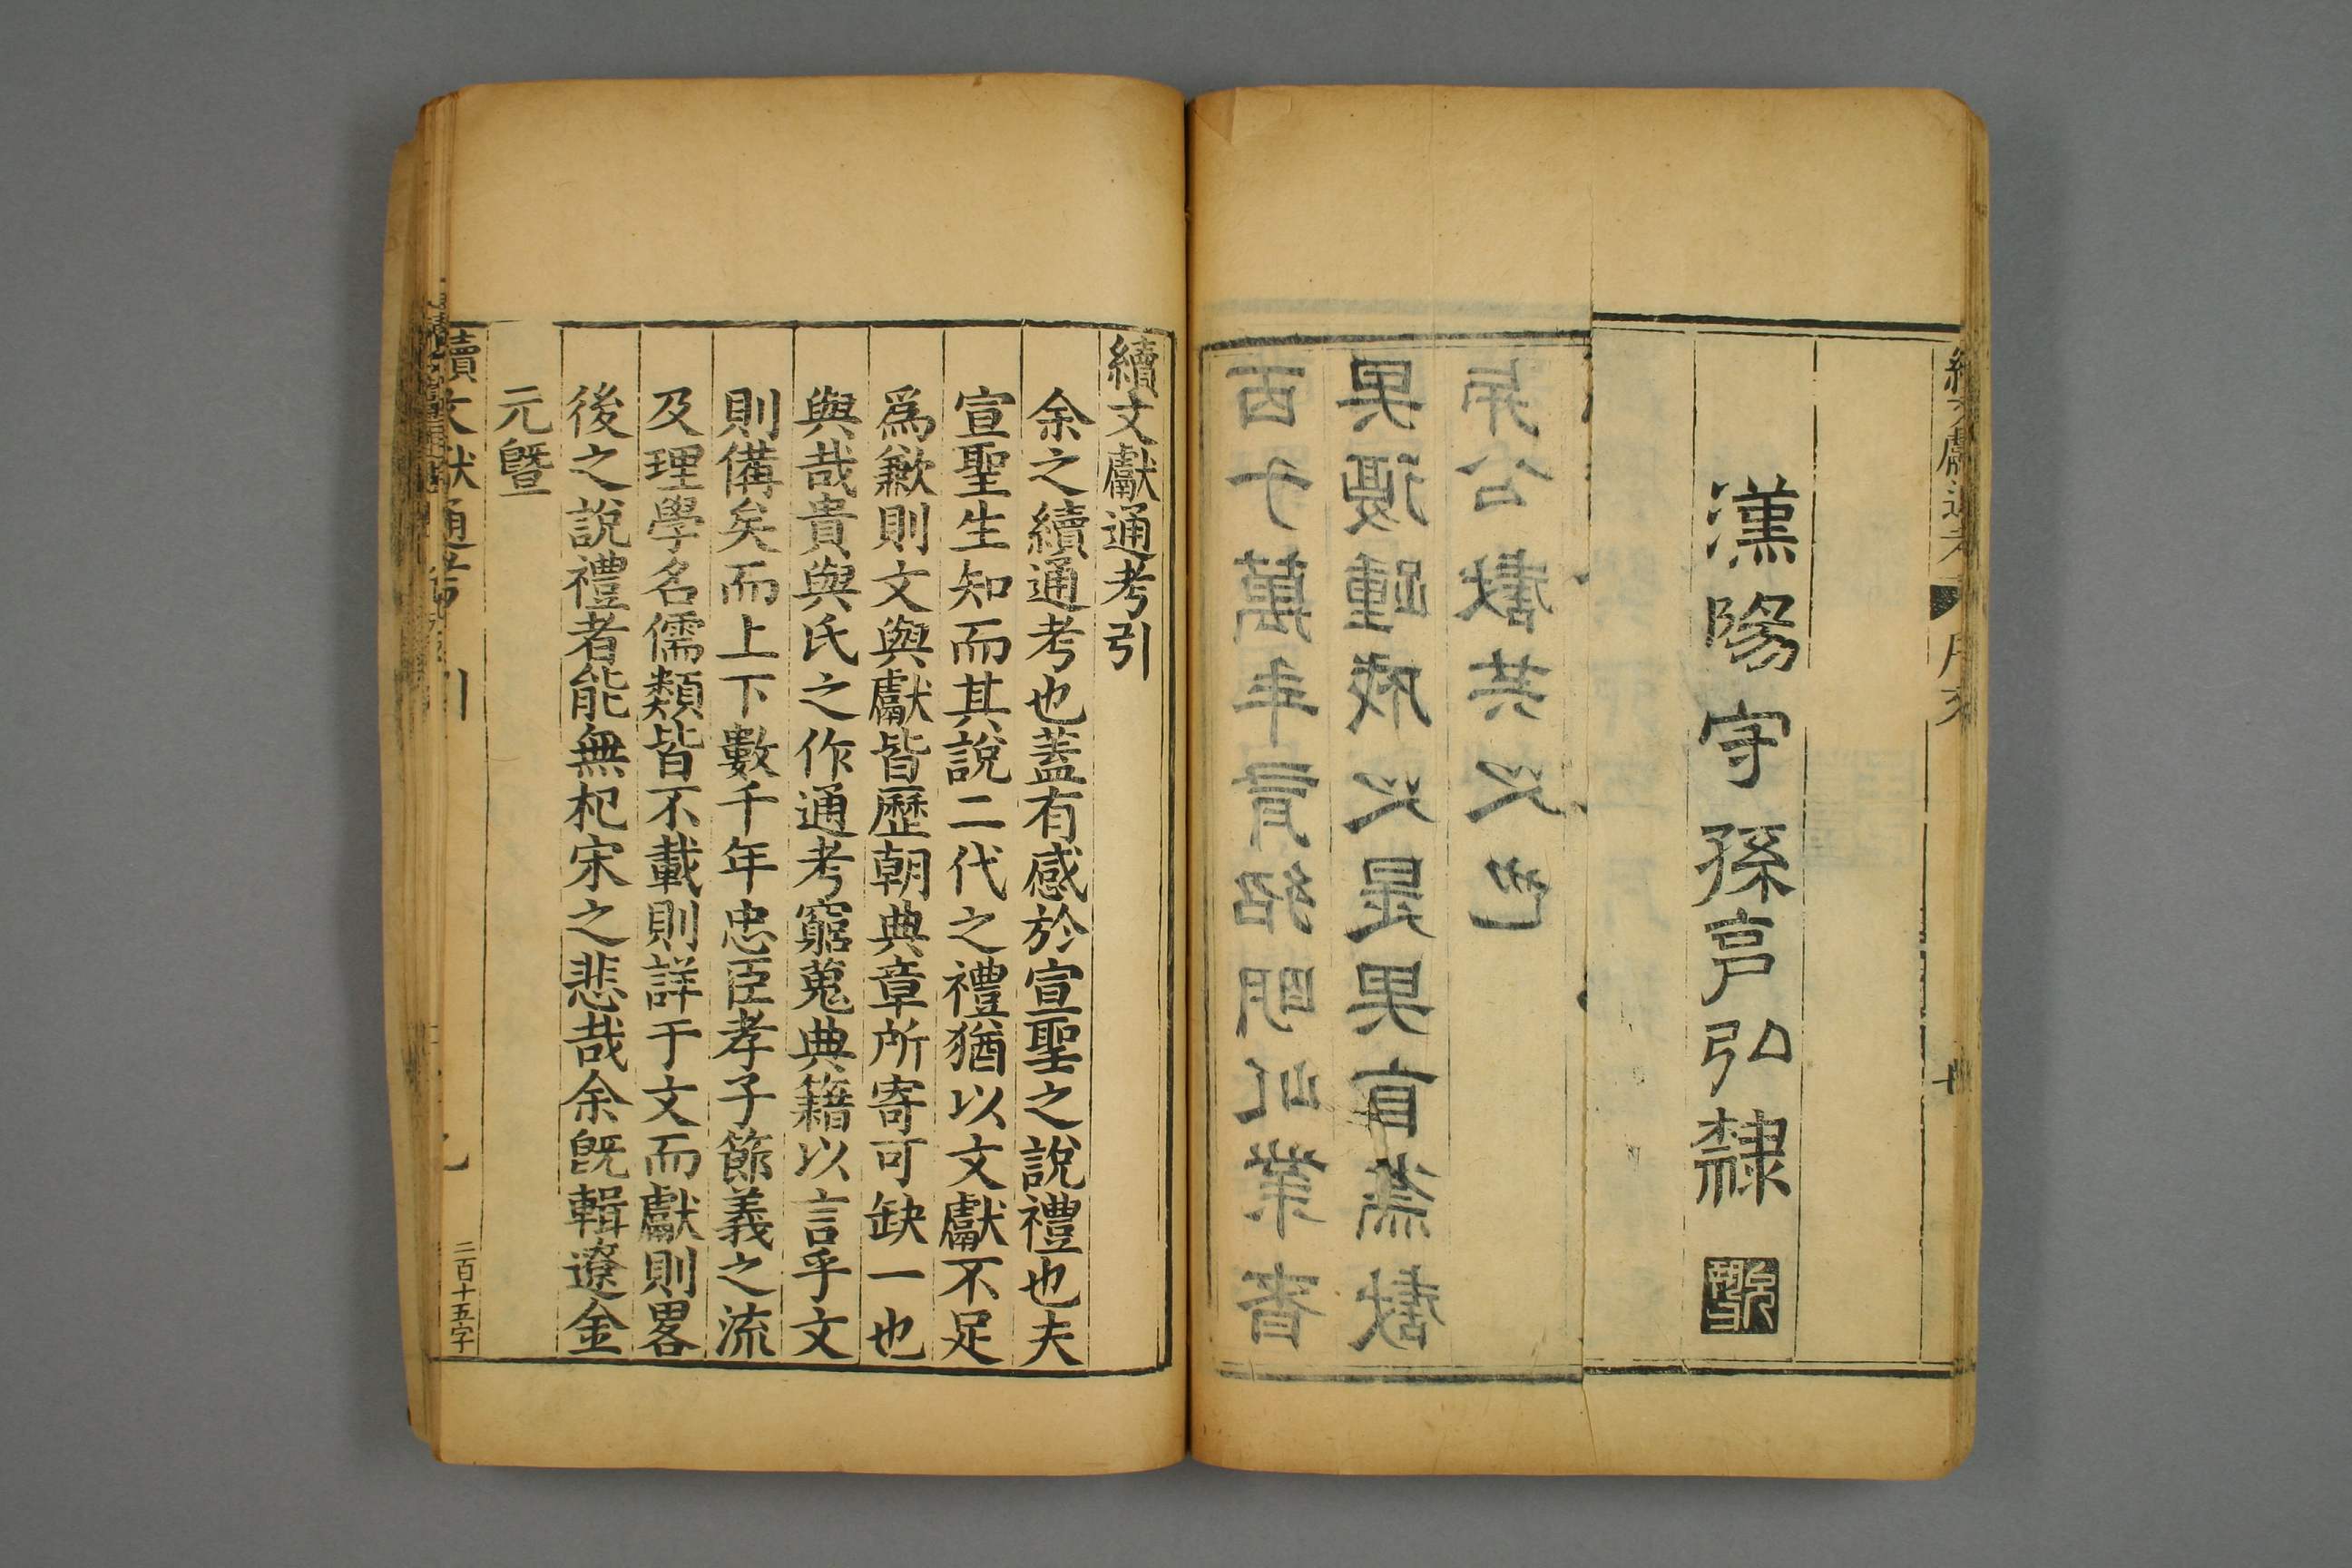 續文獻通考
漢陽守孫克弘隸
百千萬年有紹明此業者
續文獻通考引
余之續通考也蓋有感於宣聖之說禮也夫
宣聖生知而其說二代之禮猶以文獻不足
爲歉則文與獻皆歷朝典章所寄可缺一也
與哉貴與氏之作通考窮蒐典籍以言乎文
則備矣而上下數千年忠臣孝子節義之流
及理學名儒類皆不載則詳于文而獻則畧
後之說禮者能無杞宋之悲哉余旣輯遼金
元曁
續文獻通考 引
二百十五字